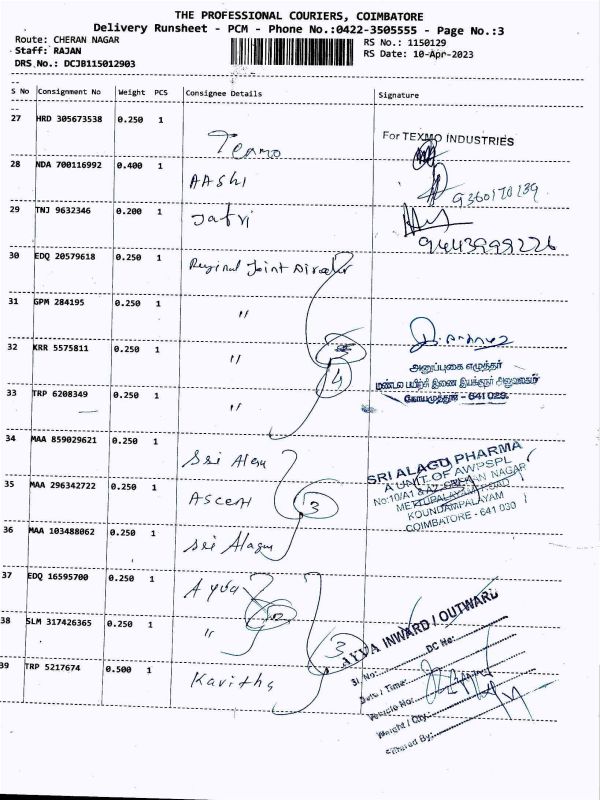 THE PROFESSIONAL COURIERS, COIMBATORE
Delivery Runsheet - PCM - Phone No.:0422-3505555 - Page No.:3
Route: CHERAN NAGAR
RS No.: 1150129
Staff: RAJAN
RS Date: 10-Apr-2023
DRS No.: DCJB115012903
S No Consignment No Weight PCS Consignee Details Signature
27 HRD 305673538 0.250 1
Texmo
For TEXMO INDUSTRIES
28 NDA 700116992 0.400 1
AAShi
9360170239
29 TNJ 9632346 0.200 1
9443999226
30 EDQ 20579618 0.250 1
Joint Director
31 GPM 284195 0.250 1
"
32 KRR 5575811 0.250 1
"
அனுப்புகை எழுத்தர்
33 TRP 6208349 0.250 1
"
4
மண்டல பயிற்சி இணை இயக்குநர் அலுவலகம்
கோயமுத்தூர் - 641 029.
34 MAA 859029621 0.250 1
Sri Alagu
SRI ALAGU PHARMA
A UNIT OF AWPSPL
35 MAA 296342722 0.250 1
Ascent
3
METTUPALAYAM ROAD
KOUNDAMPALAYAM
COIMBATORE - 641 030
36 MAA 103488062 0.250 1
Sri Alagu
37 EDQ 16595700 0.250 1
Ayva
38 SLM 317426365 0.250 1
"
3
AYVA INWARD / OUTWARD
Sl. No: DC No:
39 TRP 5217674 0.500 1
Kavitha
Date / Time:
Vehicle No:
Weight / Qty: